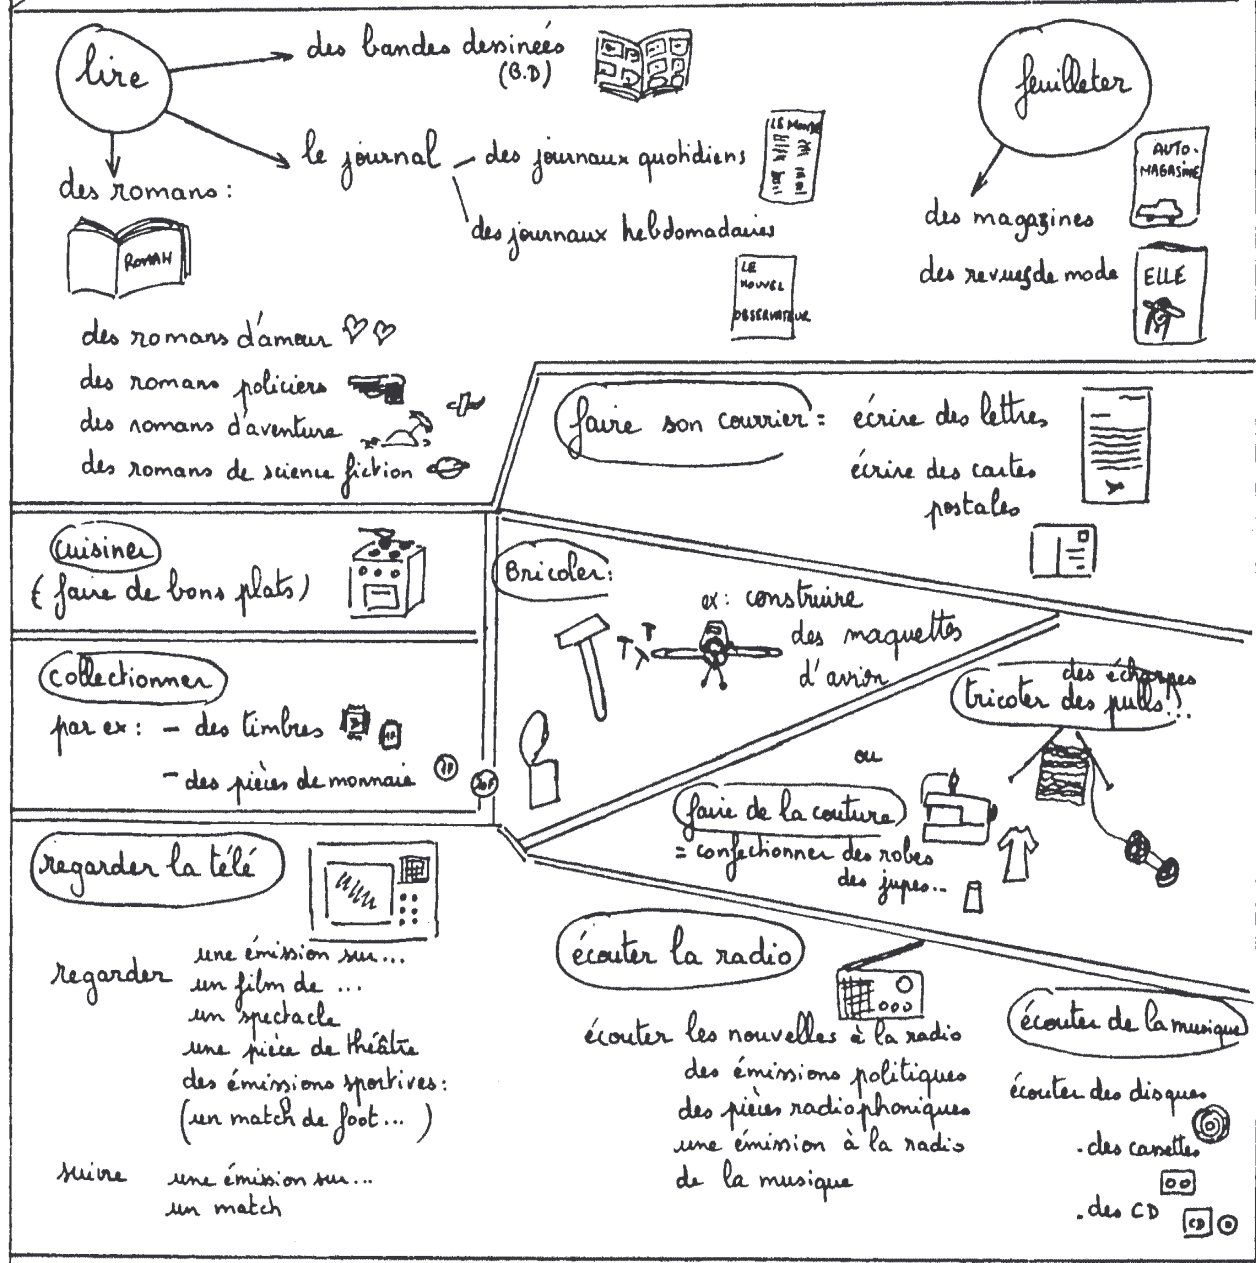 lire
des bandes dessinées
(B.D)
le journal - des journaux quotidiens
LE MONDE
des journaux hebdomadaires
LE
NOUVEL
OBSERVATEUR
des romans :
ROMAN
des romans d'amour
des romans policiers
des romans d'aventure
des romans de science fiction
feuilleter
AUTO-
MAGASINE
des magazines
des revues de mode
ELLE
faire son courrier = écrire des lettres
écrire des cartes
postales
cuisiner
(faire de bons plats)
collectionner
par ex : - des timbres
- des pièces de monnaie
Bricoler :
ex : construire
des maquettes
d'avion
des écharpes
tricoter des pulls...
ou
faire de la couture
= confectionner des robes
des jupes...
regarder la télé
regarder une émission sur...
un film de ...
un spectacle
une pièce de théâtre
des émissions sportives :
(un match de foot...)
suivre une émission sur...
un match
écouter la radio
écouter les nouvelles à la radio
des émissions politiques
des pièces radiophoniques
une émission à la radio
de la musique
écouter de la musique
écouter des disques
. des cassettes
. des CD
CD